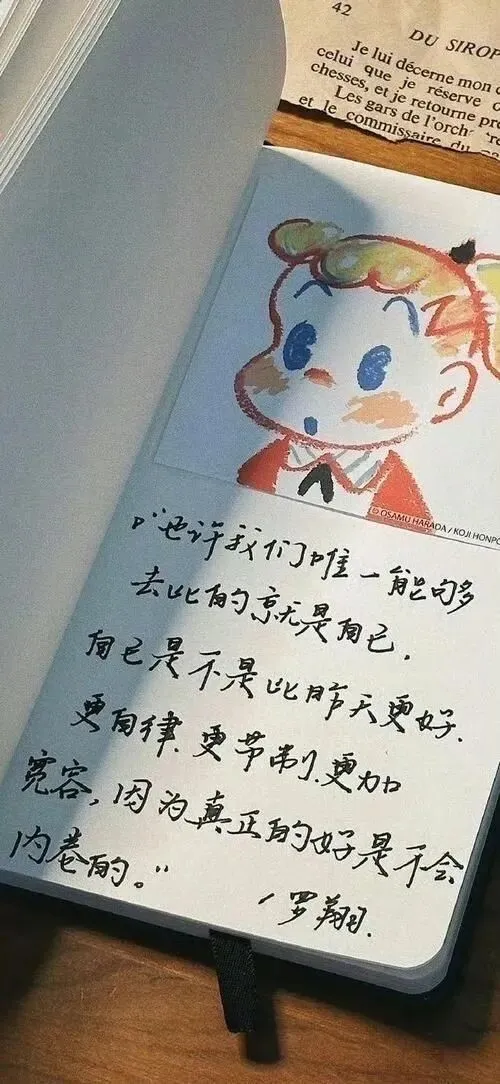 42
DU SIROP
Je lui décerne mon
celui que je réserve
chesses, et je retourne pr
Les gars de l'orch
et le commissaire du
© OSAMU HARADA / KOJI HONPO
“也许我们唯一能够
去比的就是自己，
自己是不是比昨天更好.
更自律.更节制.更加
宽容，因为真正的好是不会
内卷的。”
罗翔.